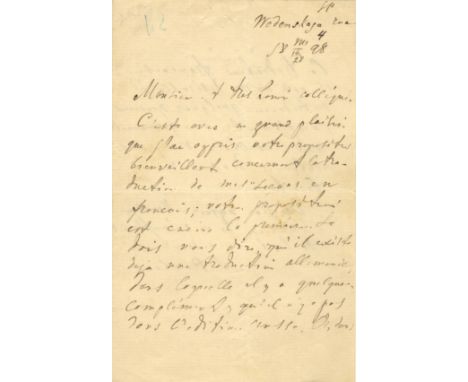 Wedenskaya rue
4
98
Monsieur et très honoré collègue.
C'est avec un grand plaisir
que j'ai appris votre proposition
bienveillante concernant la tra-
duction de mes "Leçons" en
français; votre proposition
est encore la première. Je
dois vous dire, qu'il existe
déjà une traduction allemande,
dans laquelle il y a quelques
compléments, qu'il n'y a pas
dans l'édition russe.